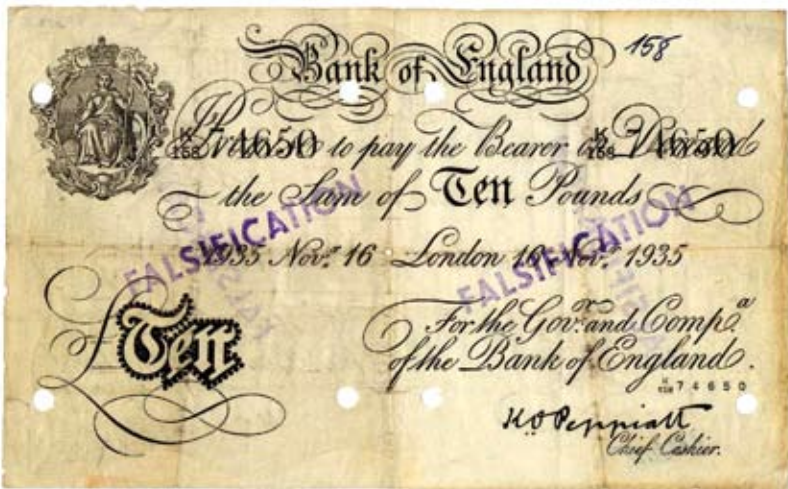 158
Bank of England
K 158 74650 Promise to pay the Bearer on Demand K 158 74650
the Sum of Ten Pounds
FALSIFICATION FALSIFICATION
1935 Nov.r 16 London 16 Nov.r 1935
Ten
For the Gov.r and Comp.a
of the Bank of England.
K 158 74650
K O Peppiatt
Chief Cashier.